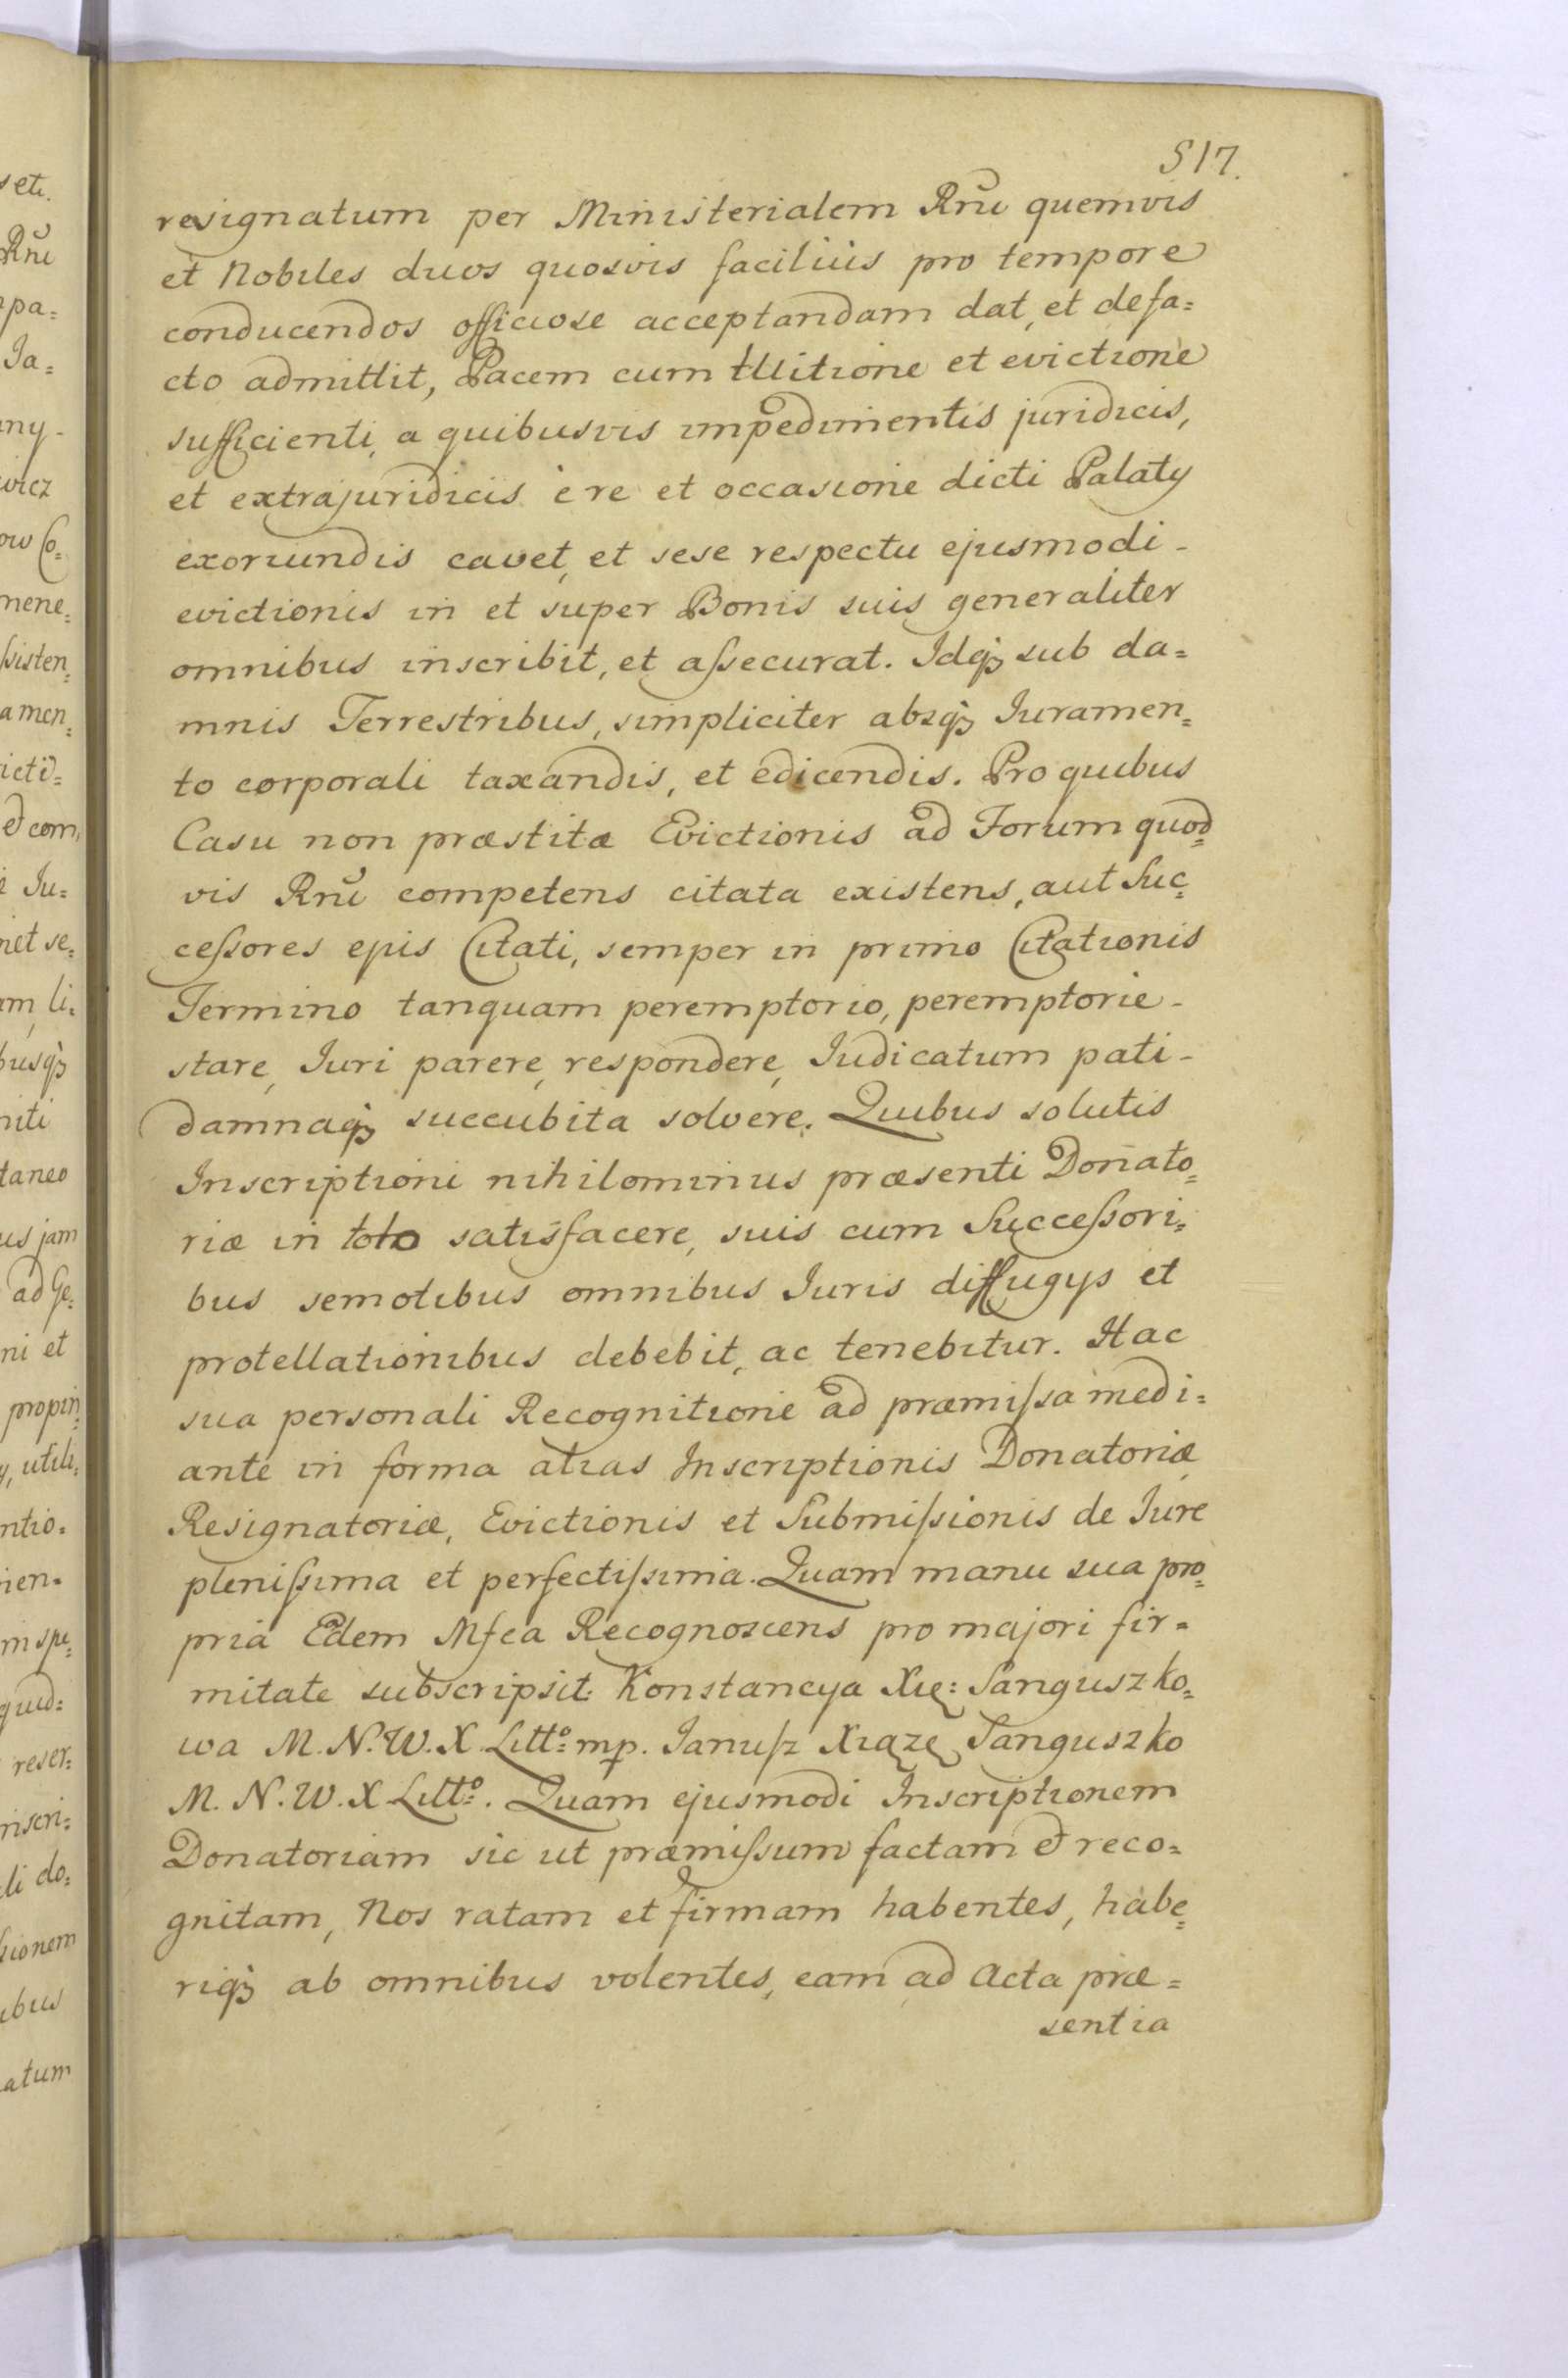 517.
resignatum per Ministerialem Rnĭ quemvis
et Nobiles duos quosvis faciliùs pro tempore
conducendos officiose acceptandam dat, et defa=
cto admittit, Pacem cum tuitione et evictione
sufficienti, a quibusvis impedimentis juridicis,
et extrajuridicis è re et occasione dicti Palatÿ
exoriundis cavet, et sese respectu ejusmodi -
evictionis in et super Bonis suis generaliter
omnibus inscribit, et aſsecurat. Idqꝫ sub da=
mnis Terrestribus, simpliciter absqꝫ Iuramen=
to corporali taxandis, et edicendis. Pro quibus
Casu non præstitæ Evictionis ad Forum quod=
vis Rnĭ competens citata existens, aut Suc=
ceſsores ejus Citati, semper in primo Citationis
Termino tanquam peremptorio, peremptorie -
stare, Iuri parere, respondere, Iudicatum pati -
damnaqꝫ succubita solvere. Quibus solutis
Inscriptioni nihilominus præsenti Donato=
riæ in toto satisfacere, suis cum Succeſsori=
bus semotibus omnibus Iuris diffugÿs et
protellationibus debebit, ac tenebitur. Hac
sua personali Recognitione ad præmiſsa medi=
ante in forma alias Inscriptionis Donatoriæ
Resignatoriæ, Evictionis et Submiſsionis de Iure
pleniſsima et perfectiſsima. Quam manu sua pro=
pria Edem Mfca Recognoscens pro majori fir=
mitate subscripsit: Konstancya Xię: Sanguszko=
wa M. N. W. X. Litt⁰: mp. Ianuſz Xiązę Sanguszko
M. N. W. X Litt⁰:. Quam ejusmodi Inscriptionem
Donatoriam sic ut præmiſsum factam et reco=
gnitam, Nos ratam et firmam habentes, habe=
riqꝫ ab omnibus volentes, eam ad Acta præ=
sentia